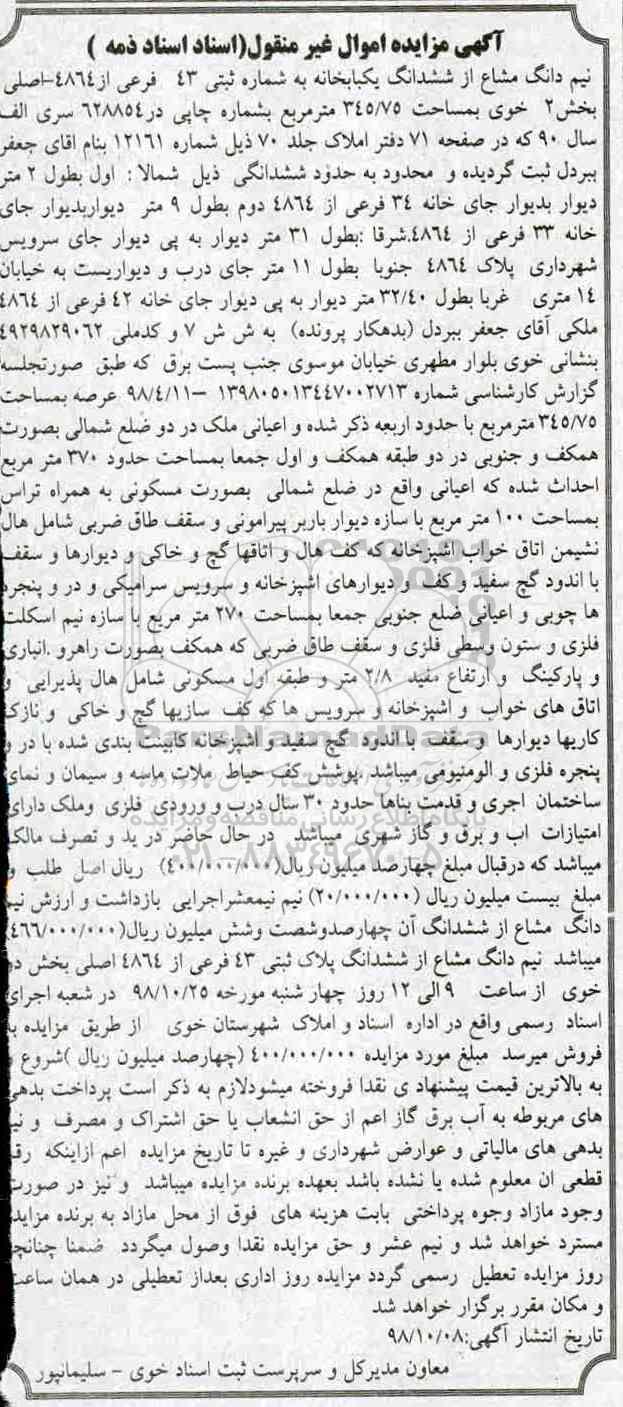 آگهی مزایده اموال غیر منقول(اسناد اسناد ذمه )
نیم دانگ مشاع از ششدانگ یکبابخانه به شماره ثبتی ۴۳ فرعی از۴۸۶۴-اصلی
بخش۲ خوی بمساحت ۳۴۵/۷۵ مترمربع بشماره چاپی در۶۲۸۸۵۴ سری الف
سال ۹۰ که در صفحه ۷۱ دفتر املاک جلد ۷۰ ذیل شماره ۱۲۱۶۱ بنام اقای جعفر
ببردل ثبت گردیده و محدود به حدود ششدانگی ذیل شمالا : اول بطول ۲ متر
دیوار بدیوار جای خانه ۳۴ فرعی از ۴۸۶۴ دوم بطول ۹ متر دیواربدیوار جای
خانه ۳۳ فرعی از ۴۸۶۴.شرقا :بطول ۳۱ متر دیوار به پی دیوار جای سرویس
شهرداری پلاک ۴۸۶۴ جنوبا بطول ۱۱ متر جای درب و دیواریست به خیابان
۱۴ متری غربا بطول ۳۲/۴۰ متر دیوار به پی دیوار جای خانه ۴۲ فرعی از ۴۸۶۴
ملکی آقای جعفر ببردل (بدهکار پرونده) به ش ش ۷ و کدملی ۴۹۲۹۸۲۹۰۶۲
بنشانی خوی بلوار مطهری خیابان موسوی جنب پست برق که طبق صورتجلسه
گزارش کارشناسی شماره ۱۳۹۸۰۵۰۱۳۴۴۷۰۰۲۷۱۳ –۹۸/۴/۱۱ عرصه بمساحت
۳۴۵/۷۵ مترمربع با حدود اربعه ذکر شده و اعیانی ملک در دو ضلع شمالی بصورت
همکف و جنوبی در دو طبقه همکف و اول جمعا بمساحت حدود ۳۷۰ متر مربع
احداث شده که اعیانی واقع در ضلع شمالی بصورت مسکونی به همراه تراس
بمساحت ۱۰۰ متر مربع با سازه دیوار باربر پیرامونی و سقف طاق ضربی شامل هال
نشیمن اتاق خواب اشپزخانه که کف هال و اتاقها گچ و خاکی و دیوارها و سقف
با اندود گچ سفید و کف و دیوارهای اشپزخانه و سرویس سرامیکی و در و پنجره
ها چوبی و اعیانی ضلع جنوبی جمعا بمساحت ۲۷۰ متر مربع با سازه نیم اسکلت
فلزی و ستون وسطی فلزی و سقف طاق ضربی که همکف بصورت راهرو .انباری
و پارکینگ و ارتفاع مفید ۲/۸ متر و طبقه اول مسکونی شامل هال پذیرایی و
اتاق های خواب و اشپزخانه و سرویس ها که کف سازیها گچ و خاکی و نازک
کاریها دیوارها و سقف با اندود گچ سفید و اشپزخانه کابینت بندی شده با در و
پنجره فلزی و الومنیومی میباشد .پوشش کف حیاط ملات ماسه و سیمان و نمای
ساختمان اجری و قدمت بناها حدود ۳۰ سال درب و ورودی فلزی وملک دارای
امتیازات اب و برق و گاز شهری میباشد در حال حاضر در ید و تصرف مالک
میباشد که درقبال مبلغ چهارصد میلیون ریال(۴۰۰/۰۰۰/۰۰۰) ریال اصل طلب و
مبلغ بیست میلیون ریال (۲۰/۰۰۰/۰۰۰) نیم نیمعشراجرایی بازداشت و ارزش نیم
دانگ مشاع از ششدانگ آن چهارصدوشصت وشش میلیون ریال(۴۶۶/۰۰۰/۰۰۰)
میباشد نیم دانگ مشاع از ششدانگ پلاک ثبتی ۴۳ فرعی از ۴۸۶۴ اصلی بخش دو
خوی از ساعت ۹ الی ۱۲ روز چهار شنبه مورخه ۹۸/۱۰/۲۵ در شعبه اجرای
اسناد رسمی واقع در اداره اسناد و املاک شهرستان خوی از طریق مزایده به
فروش میرسد مبلغ مورد مزایده ۴۰۰/۰۰۰/۰۰۰ (چهارصد میلیون ریال )شروع و
به بالاترین قیمت پیشنهاد ی نقدا فروخته میشودلازم به ذکر است پرداخت بدهی
های مربوطه به آب برق گاز اعم از حق انشعاب یا حق اشتراک و مصرف و نیز
بدهی های مالیاتی و عوارض شهرداری و غیره تا تاریخ مزایده اعم ازاینکه رقم
قطعی ان معلوم شده یا نشده باشد بعهده برنده مزایده میباشد و نیز در صورت
وجود مازاد وجوه پرداختی بابت هزینه های فوق از محل مازاد به برنده مزایده
مسترد خواهد شد و نیم عشر و حق مزایده نقدا وصول میگردد ضمنا چنانچه
روز مزایده تعطیل رسمی گردد مزایده روز اداری بعداز تعطیلی در همان ساعت
و مکان مقرر برگزار خواهد شد
تاریخ انتشار آگهی:۹۸/۱۰/۰۸
معاون مدیرکل و سرپرست ثبت اسناد خوی – سلیمانپور
ParsNamadData
پایگاه اطلاع رسانی مناقصه و مزایده
۰۲۱-۸۸۳۴۹۶۷۰-۵